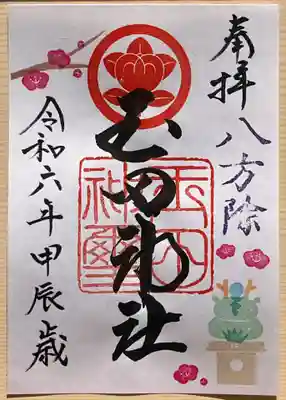 奉拝 八方除
玉田神社
玉田神璽
令和六年甲辰歳